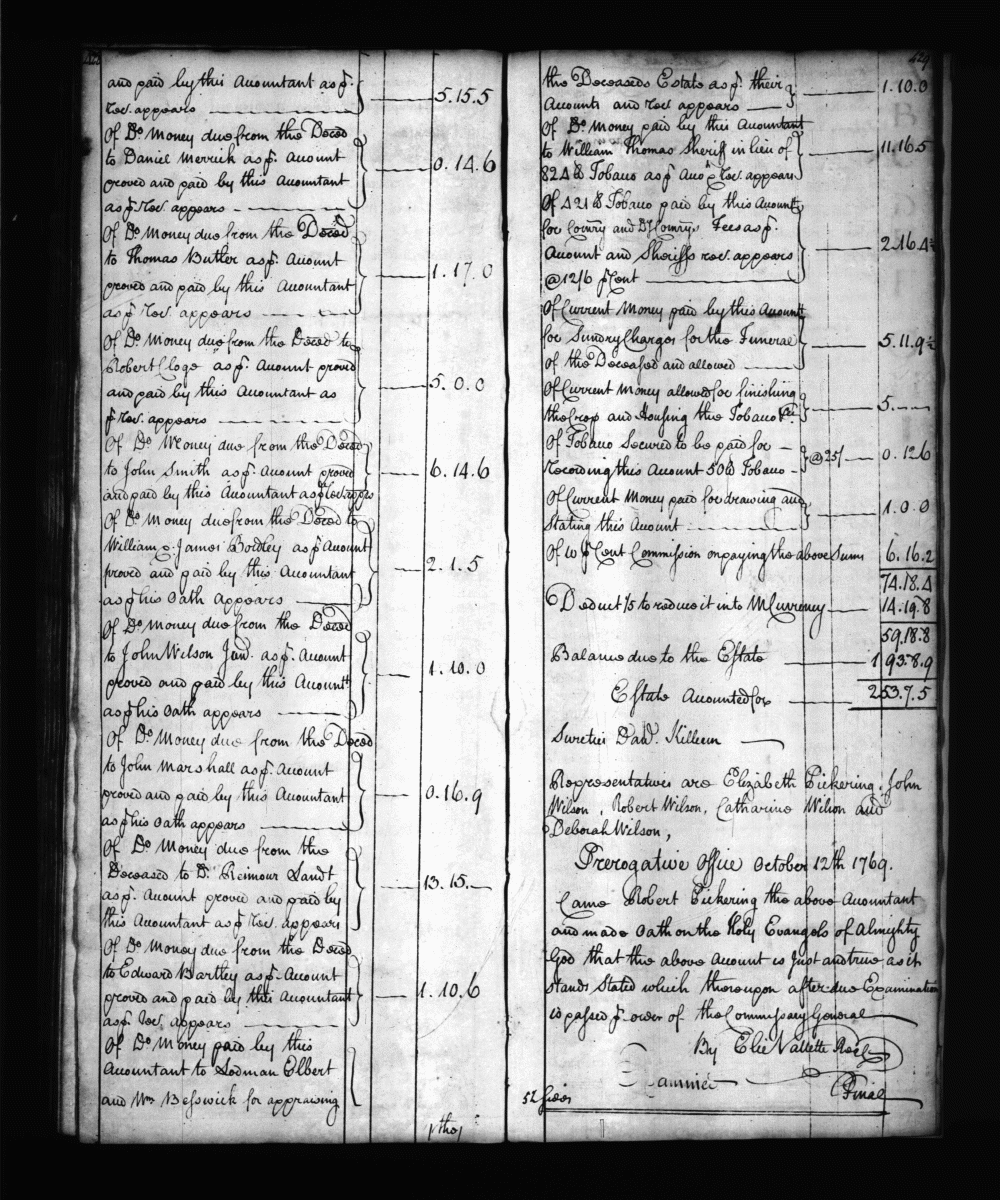 and paid by this Accountant as pr.
Rec. appears 5.15.5
Of Do. Money due from the Deced
to Daniel Merrick as pr. Account
proved and paid by this Accountant
as pr Rec. appears 0.14.6
Of Do. Money due from the Deced
to Thomas Butler as pr. Account
proved and paid by this Accountant
as pr Rec. appears 1.17.0
Of Do. Money due from the Deced to
Robert Cloge as pr. Account proved
and paid by this Accountant as
pr Rec. appears 5.0.0
Of Do. Money due from the Deced
to John Smith as pr. Account proved
and paid by this Accountant as pr Rec. appes 6.14.6
Of Do. Money due from the Deced to
William & James Bordley as pr Account
proved and paid by this Accountant
as pr his Oath appears 2.1.5
Of Do. Money due from the Deced
to John Wilson Junr. as pr. Account
proved and paid by this Accountt
as pr his Oath appears 1.10.0
Of Do. Money due from the Deced
to John Marshall as pr. Account
proved and paid by this Accountant
as pr his Oath appears 0.16.9
Of Do. Money due from the
Deceased to Dr. Reimour Landt
as pr. Account proved and paid by
this Accountant as pr Rec. appears 13.15.
Of Do. Money due from the Deced
to Edward Bartley as pr. Account
proved and paid by this Accountant
as pr. Rec. appears 1.10.6
Of Do. Money paid by this
Accountant to Lodman Elbert
and Wm. Beswick for appraising
the
the Deceaseds Estate as pr. their
Accounts and Rec. appears 1.10.0
Of Do. Money paid by this Accountant
to William Thomas Sheriff in lieu of
824 lb Tobacco as pr Acco & Rec. appears 11.16.5
Of 421 lb Tobacco paid by this Account
for Comry and Dy Comrys. Fees as pr.
Account and Sheriffs rec. appears
@ 12/6 pr Cent 2.16.4½
Of Current Money paid by this Account
for Sundry Charges for the Funeral
of the Deceased and allowed 5.11.9½
Of Current Money allowed for finishing
the Crop and Housing the Tobacco &c. 5.
Of Tobacco Secured to be paid for
Recording this Account 50 lb Tobacco @ 25/ 0.12.6
Of Current Money paid for drawing and
Stating this Account 1.0.0
Of 10 pr Cent Commission on paying the above Sums 6.16.2
74.18.4
Deduct 1/5 to reduce it into M Currency 14.19.8
59.18.8
Balance due to the Estate 193.8.9
Estate Accounted for 253.7.5
Sureties Davd. Killeen
Representatives are Elizabeth Pickering, John
Wilson, Robert Wilson, Catharine Wilson and
Deborah Wilson,
Prerogative Office October 12th 1769.
Came Robert Pickering the above Accountant
and made Oath on the Holy Evangels of Almighty
God that the above Account is Just and true as it
stands Stated which thereupon after due Examination
is passed pr order of the Commissary General
By Elie Vallette Regr
Examiner
Final
52 Sides